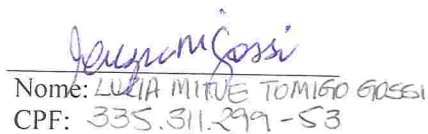 Nome: LUCIA MITUE TOMIGO GOSSI
CPF: 335.311.299-53